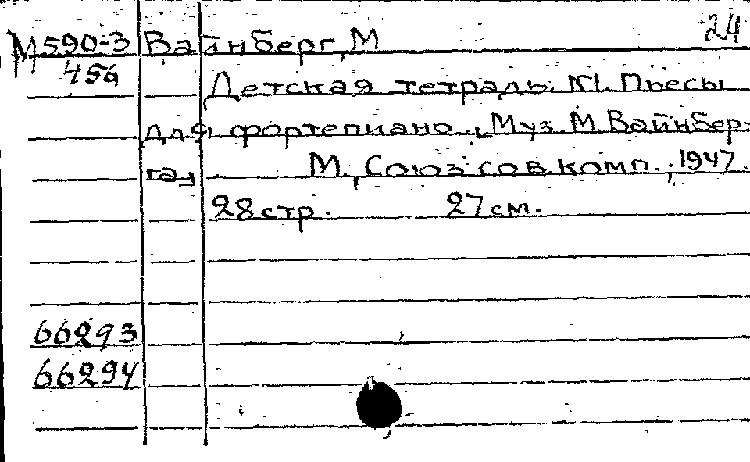 24
М590-3 Вайнберг, М
456
Детская тетрадь. №1. Пьесы
для фортепиано. Муз. М. Вайнбер-
га. М., Союз сов. комп., 1947.
28 стр. 27 см.
66293
66294